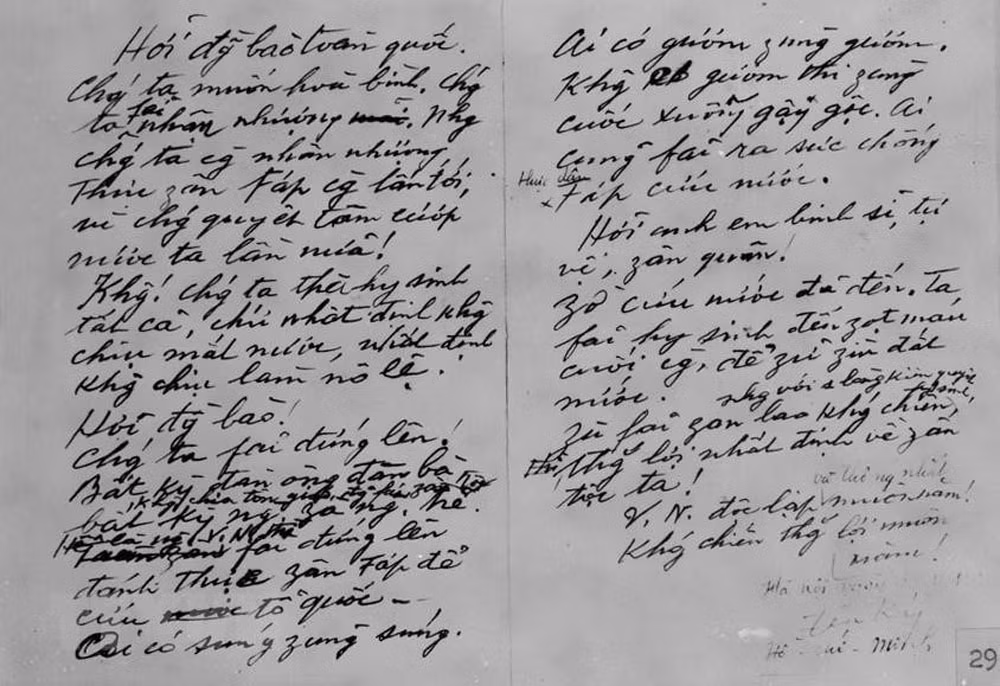 Hỡi đỳ bào toàn quốc.
Chý ta muốn hoà bình, chý
ta fải nhân nhượng. Nhg
chý ta cg nhân nhượng
thực zân Fáp cg lấn tới,
vì chý quyết tâm cướp
nước ta lần nữa!
Khg! chý ta thà hy sinh
tất cả, chứ nhất định khg
chịu mất nước, nhất định
khg chịu làm nô lệ.
Hỡi đỳ bào!
Chý ta fải đứng lên!
Bất kỳ đàn ông đàn bà
khg chia tôn giáo, đg fái, zân tộc
bất kỳ ng zà ng trẻ.
Hễ là ng V.N. thì
fải đứng lên
đánh thực zân Fáp để
cứu tổ quốc -
Ai có súng zùng súng.
Ai có gươm zùng gươm.
Khg có gươm thì zùng
cuốc xuổng gậy gộc. Ai
cũng fải ra sức chống
thực dân
Fáp cứu nước.
Hỡi anh em binh sĩ, tự
vệ, zân quân!
Zờ cứu nước đã đến. Ta
fải hy sinh đến zọt máu
cuối cg, để zữ zìn đất
nước.
Zù fải zan lao khg chiến,
nhg với 1 lòng kiên quyết
hy sinh,
thì thg lợi nhất định về zân
tộc ta!
V.N. độc lập muôn năm!
Khg chiến thg lợi muôn
năm!
Hà nội
Hồ - chí - Minh
29